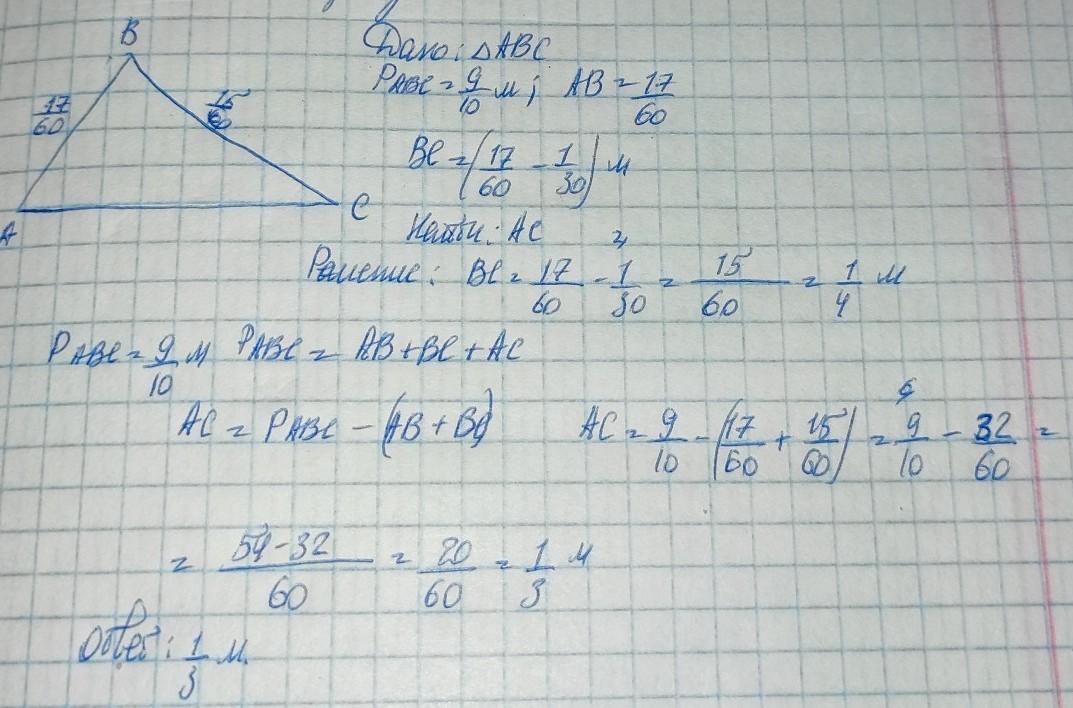 B
Дано: △ABC
17/60
15/60
P ABC = 9/10 м; AB = 17/60
BC = (17/60 - 1/30) м
A
C
Найти: AC
2
Решение: BC = 17/60 - 1/30 = 15/60 = 1/4 м
P ABC = 9/10 м P ABC = AB + BC + AC
6
AC = P ABC - (AB + BC) AC = 9/10 - (17/60 + 15/60) = 9/10 - 32/60 =
= 54-32/60 = 20/60 = 1/3 м
Ответ: 1/3 м.